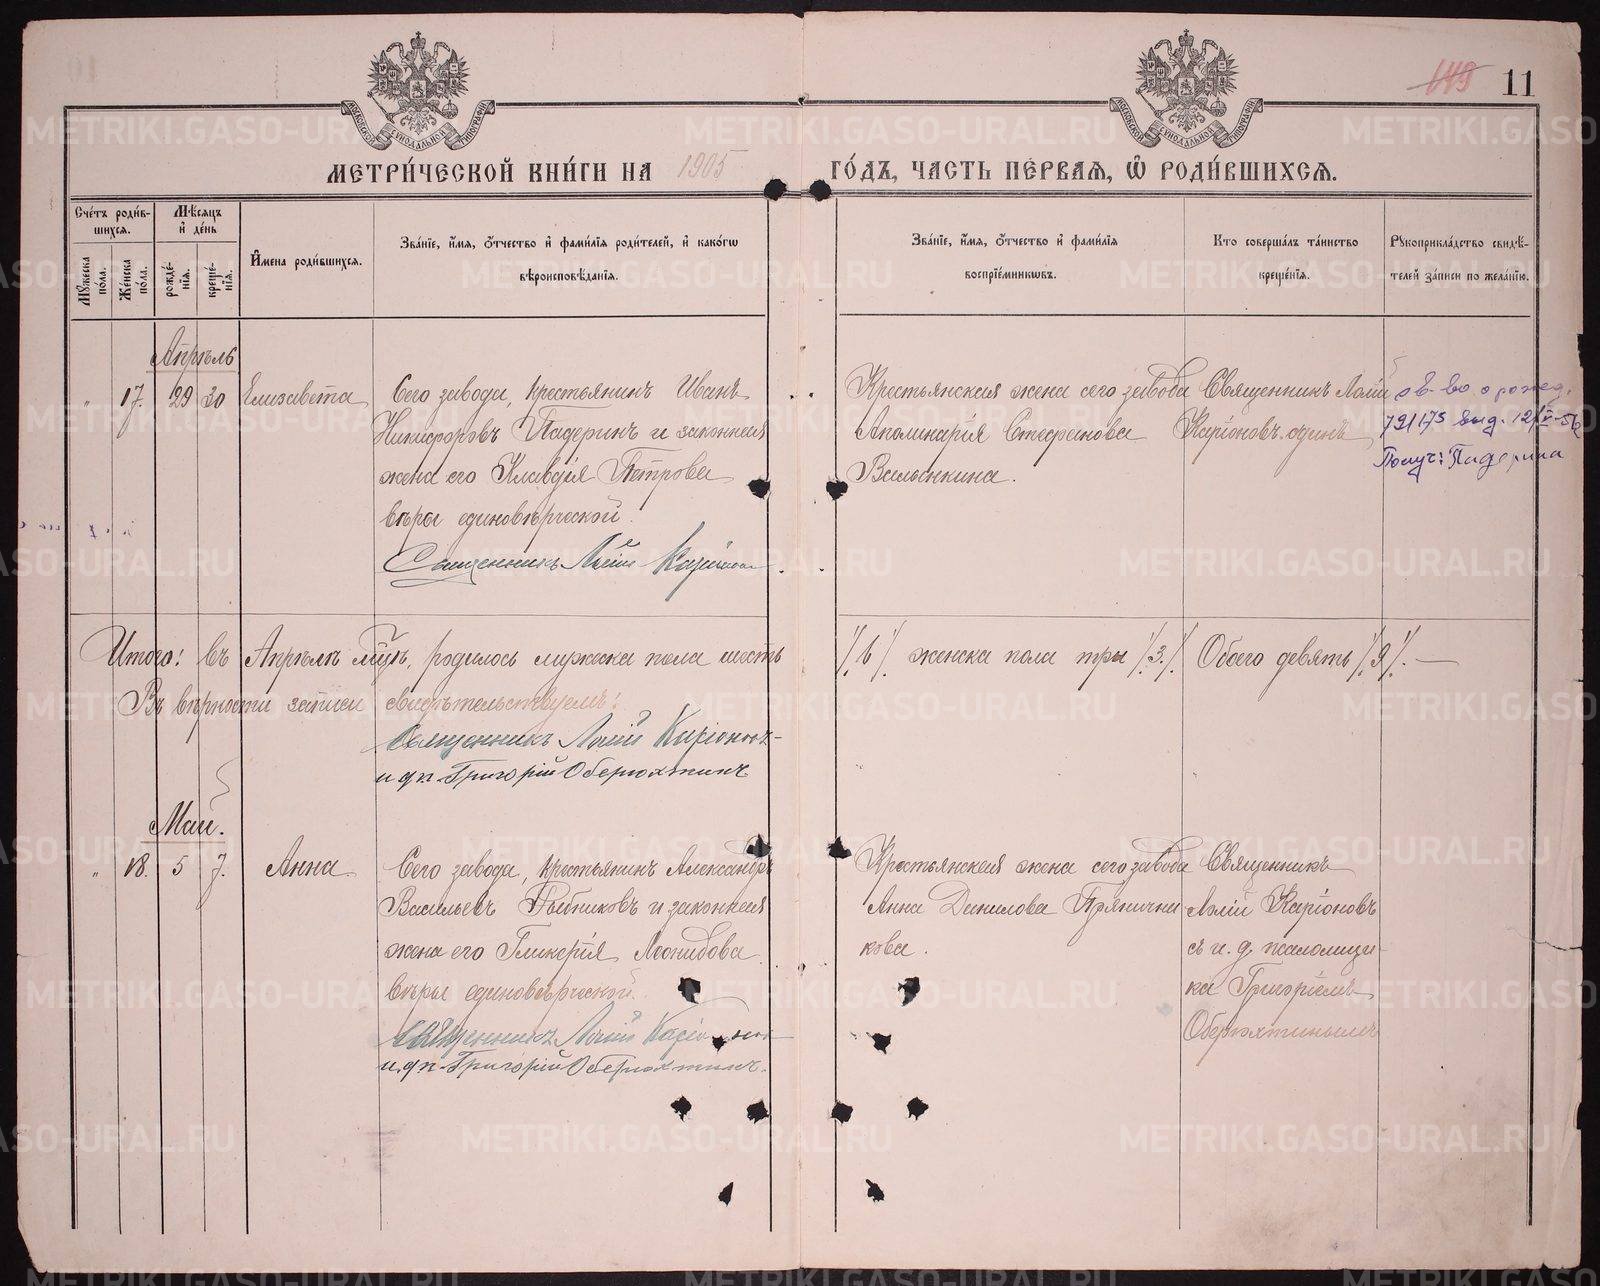 149 11
МЕТРИ́ЧЕСКОЙ КНИ́ГИ НА 1905 ГО́ДЪ, ЧАСТЬ ПЕ́РВАЯ, Ѡ҆ РОДИ́ВШИХСЯ.
Сче́тъ роди́в-
шихся.
Мꙋ́жеска по́ла.
Же́нска по́ла.
Мѣ́сяцъ
и҆ де́нь
рожде́-
нїя.
креще́-
нїя.
И҆мена роди́вшихся.
Зва́нїе, и҆́мя, ѻ҆́тчество и҆ фами́лїя роди́телей, и҆ како́гѡ
вѣроисповѣ́данїя.
Зва́нїе, и҆́мя, ѻ҆́тчество и҆ фами́лїя
воспрїе́мникѡвъ.
Кто̀ соверша́лъ та́инство
креще́нїя.
Рꙋкоприкла́дство свидѣ́-
телей за́писи по жела́нїю.
Апрѣль
" 17. 29 30 Елизавета
Сего завода, крестьянинъ Иванъ
Никифоровъ Падеринъ и законная
жена его Клавдія Петрова
вѣры единовѣрческой.
Священникъ Карионовъ
Крестьянская жена сего завода
Аполинарія Стефанова
Священникъ
Каріоновъ одинъ
св-во о рожд.
791173 выд. 12/V-56
Получ: Падерина
Итого: въ Апрѣлѣ мцѣ, родилось мужеска пола шесть /6/ женска пола три /3./ Обоего девять /9/.—
Въ вѣрности записи свидѣтельствуемъ:
Священникъ Каріоновъ
и дп. Григорій Оберюхтинъ
Май.
" 18. 5 7. Анна
Сего завода, крестьянинъ Александръ
Васильевъ Рыбниковъ и законная
жена его Гликерія Леонидова
вѣры единовѣрческой.
Священникъ
и. дп. Григорій Оберюхтинъ.
Крестьянская жена сего завода
Анна Данилова Прянични-
кова.
Священникъ
Каріоновъ
съ и. д. псаломщи-
ка Григоріемъ
Оберюхтинымъ
METRIKI.GASO-URAL.RU